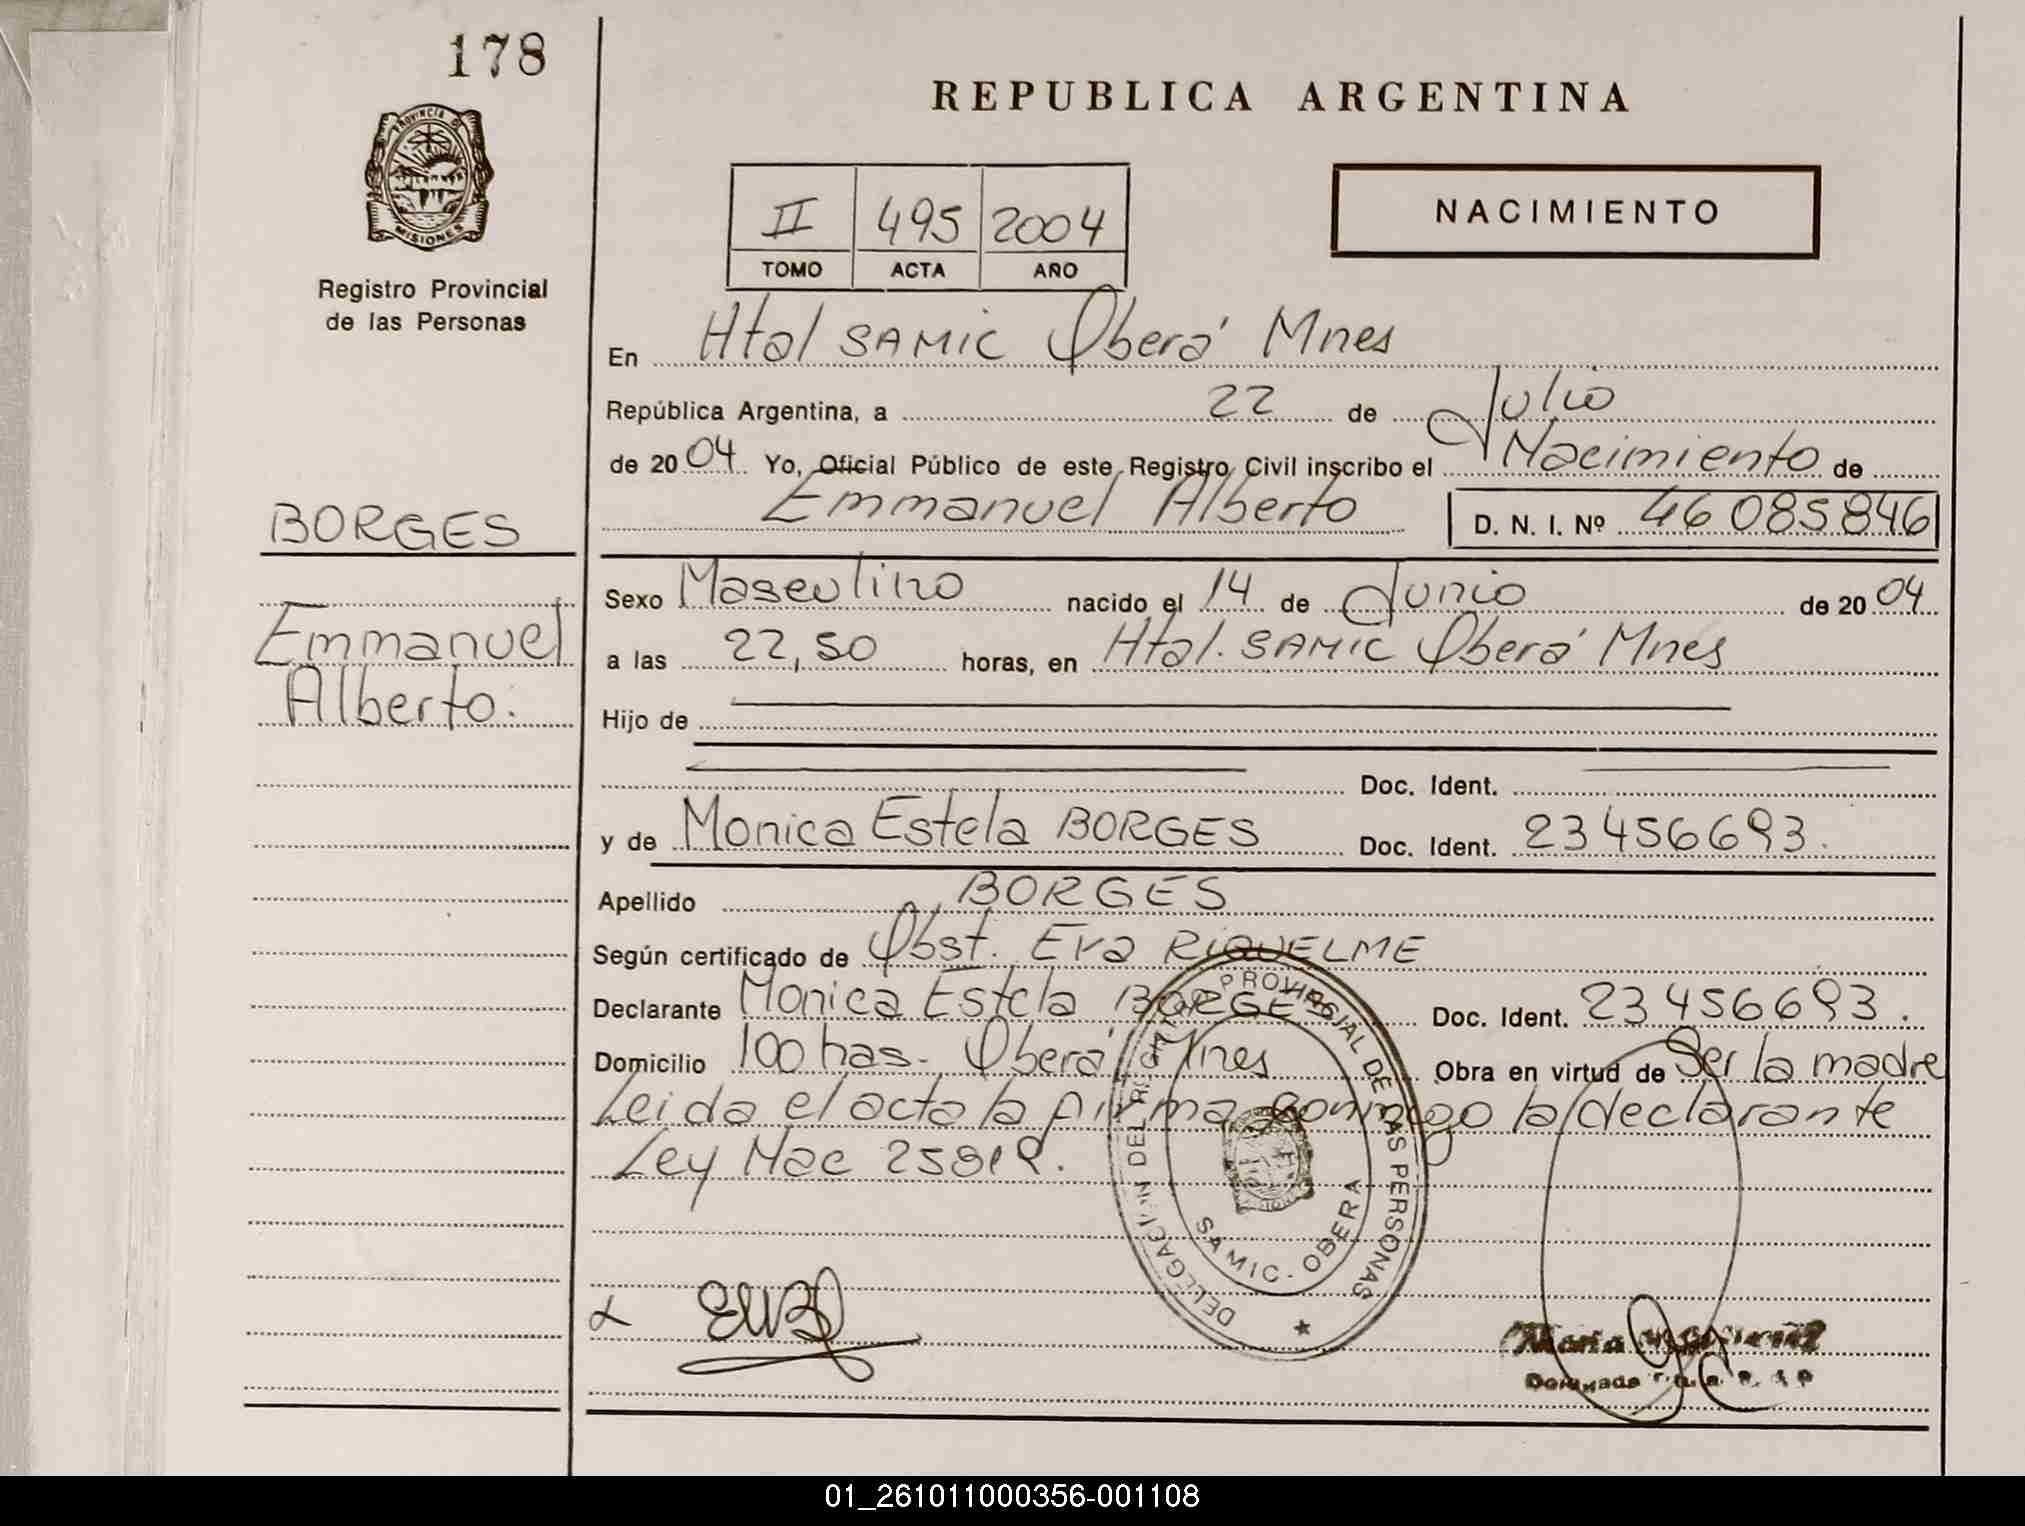 178
REPUBLICA ARGENTINA
PROVINCIA DE
MISIONES
Registro Provincial
de las Personas
II 495 2004
TOMO ACTA AÑO
NACIMIENTO
En Htal SAMIC Oberá Mnes
República Argentina, a 22 de Julio
de 2004 Yo, Oficial Público de este Registro Civil inscribo el Nacimiento de
Emmanuel Alberto D. N. I. Nº 46085846
BORGES
Emmanuel
Alberto.
Sexo Masculino nacido el 14 de Junio de 2004
a las 22,50 horas, en Htal. SAMIC Oberá Mnes
Hijo de
Doc. Ident.
y de Monica Estela BORGES Doc. Ident. 23456693.
Apellido BORGES
Según certificado de Obst. Eva RIQUELME
Declarante Monica Estela BORGES Doc. Ident. 23456693.
Domicilio 100 has - Oberá Mnes Obra en virtud de Ser la madre
Leida el acta la firma conmigo la declarante
Ley Nac
DELEGACION DEL REGISTRO PROVINCIAL DE LAS PERSONAS
SAMIC - OBERA
Maria
01_261011000356-001108